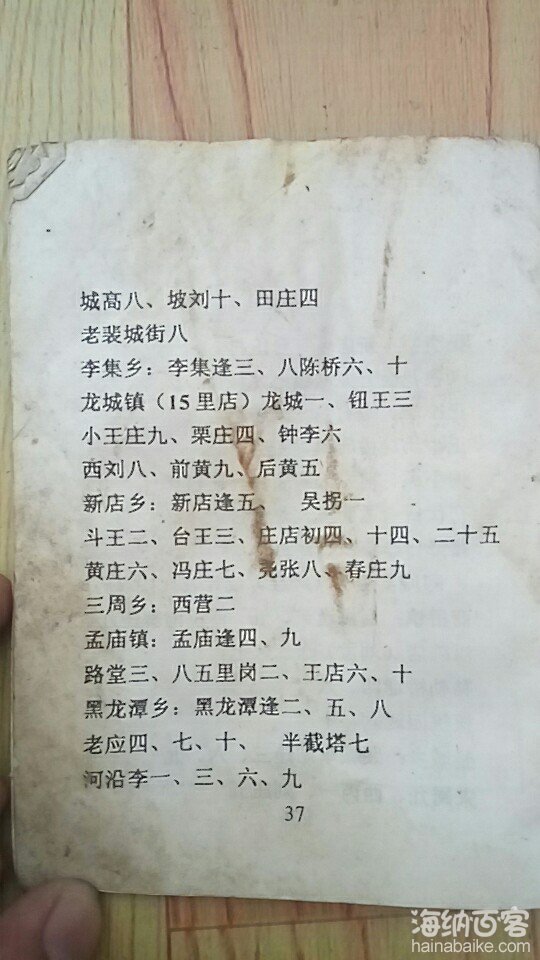 城高八、坡刘十、田庄四
老裴城街八
李集乡：李集逢三、八陈桥六、十
龙城镇（15里店）龙城一、钮王三
小王庄九、栗庄四、钟李六
西刘八、前黄九、后黄五
新店乡：新店逢五、 吴拐一
斗王二、台王三、庄店初四、十四、二十五
黄庄六、冯庄七、尧张八、春庄九
三周乡：西营二
孟庙镇：孟庙逢四、九
路堂三、八五里岗二、王店六、十
黑龙潭乡：黑龙潭逢二、五、八
老应四、七、十、 半截塔七
河沿李一、三、六、九
37
海纳百客
hainabaike.com